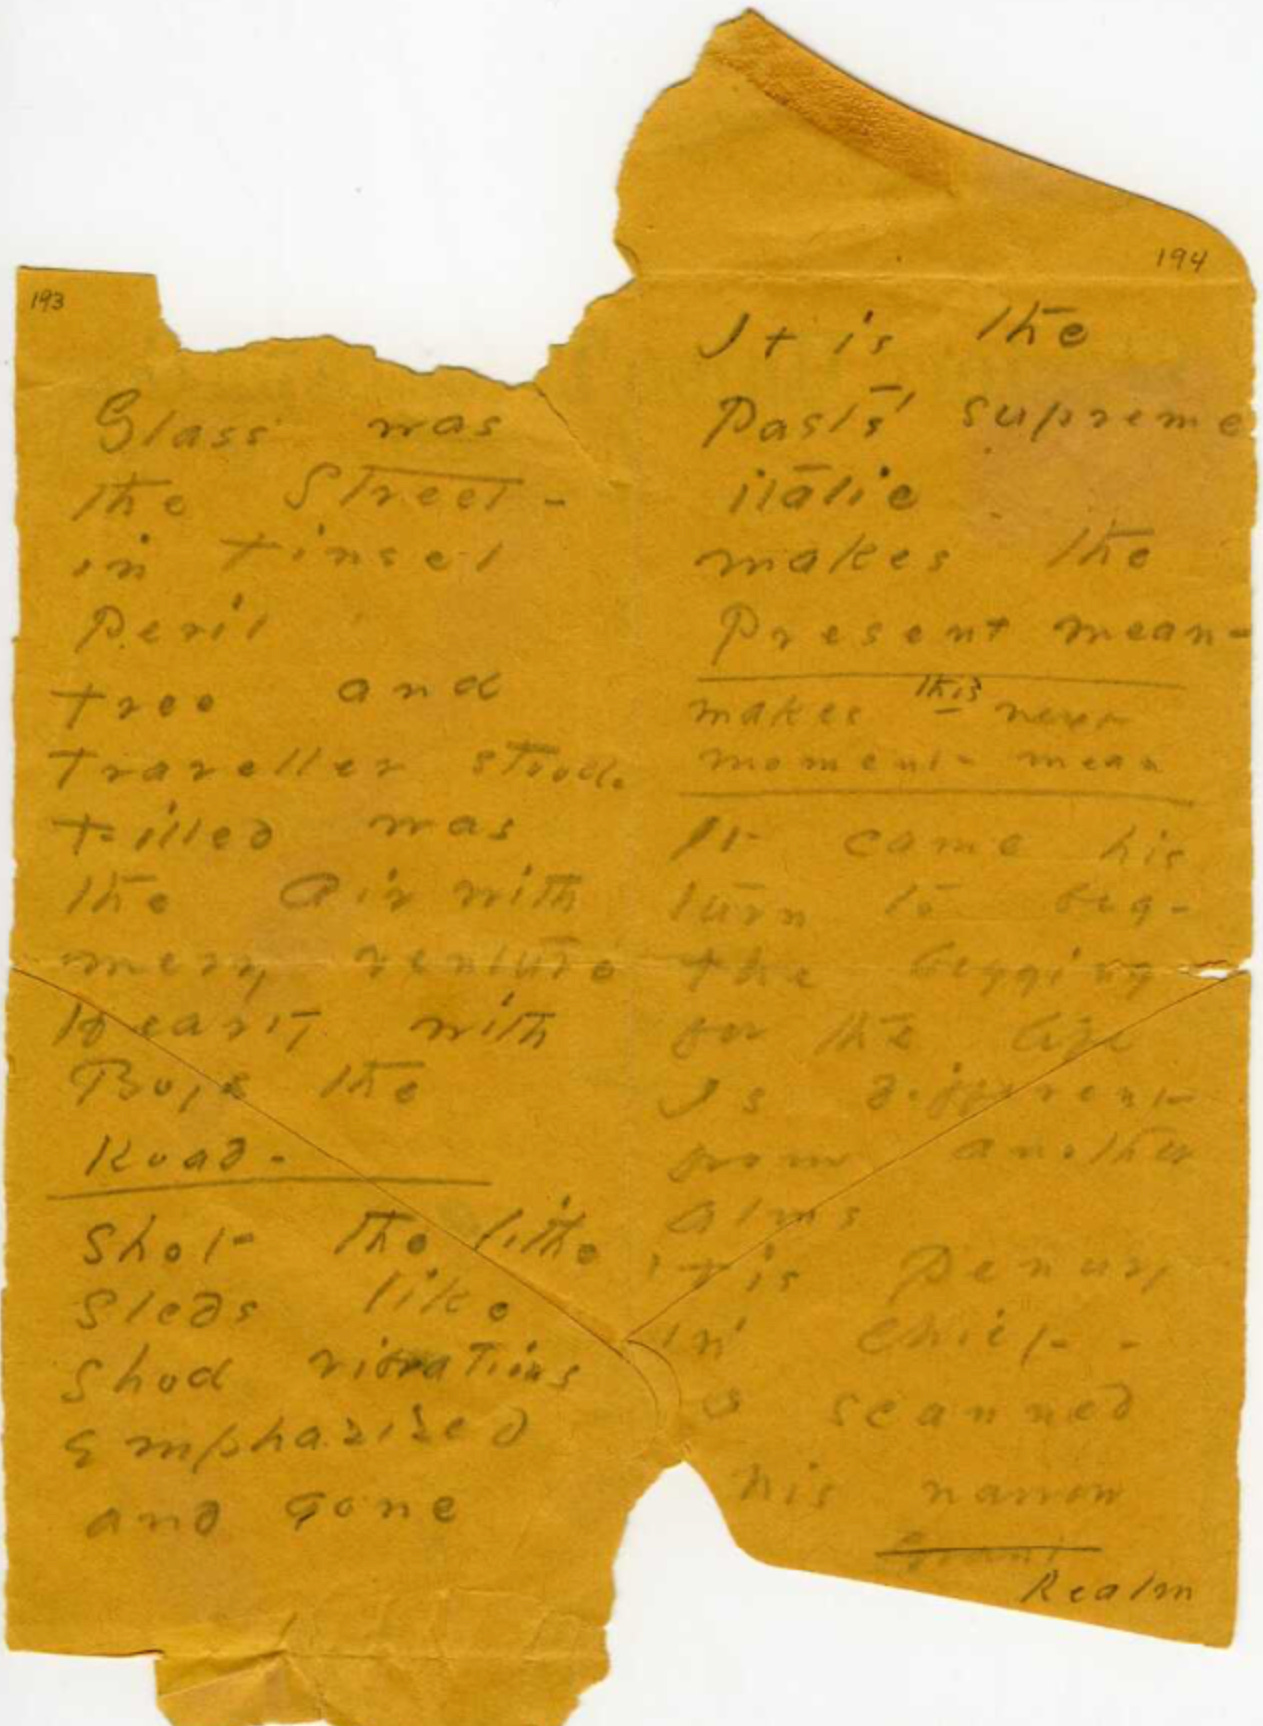 193
Glass was
the Street -
in tinsel
Peril
tree and
Traveller stood.
Filled was
the Air with
merry venture
Hearty with
Boys the
Road -
Shot the lithe
Sleds like
Shod vibrations
Emphasized
and gone
194
It is the
Past's supreme
italic
makes the
Present mean -
makes this new
moment mean
It came his
turn to beg -
the begging
for the life
Is different
from another
Alms
'tis Penury
in Chief -
scanned
his narrow
Realm